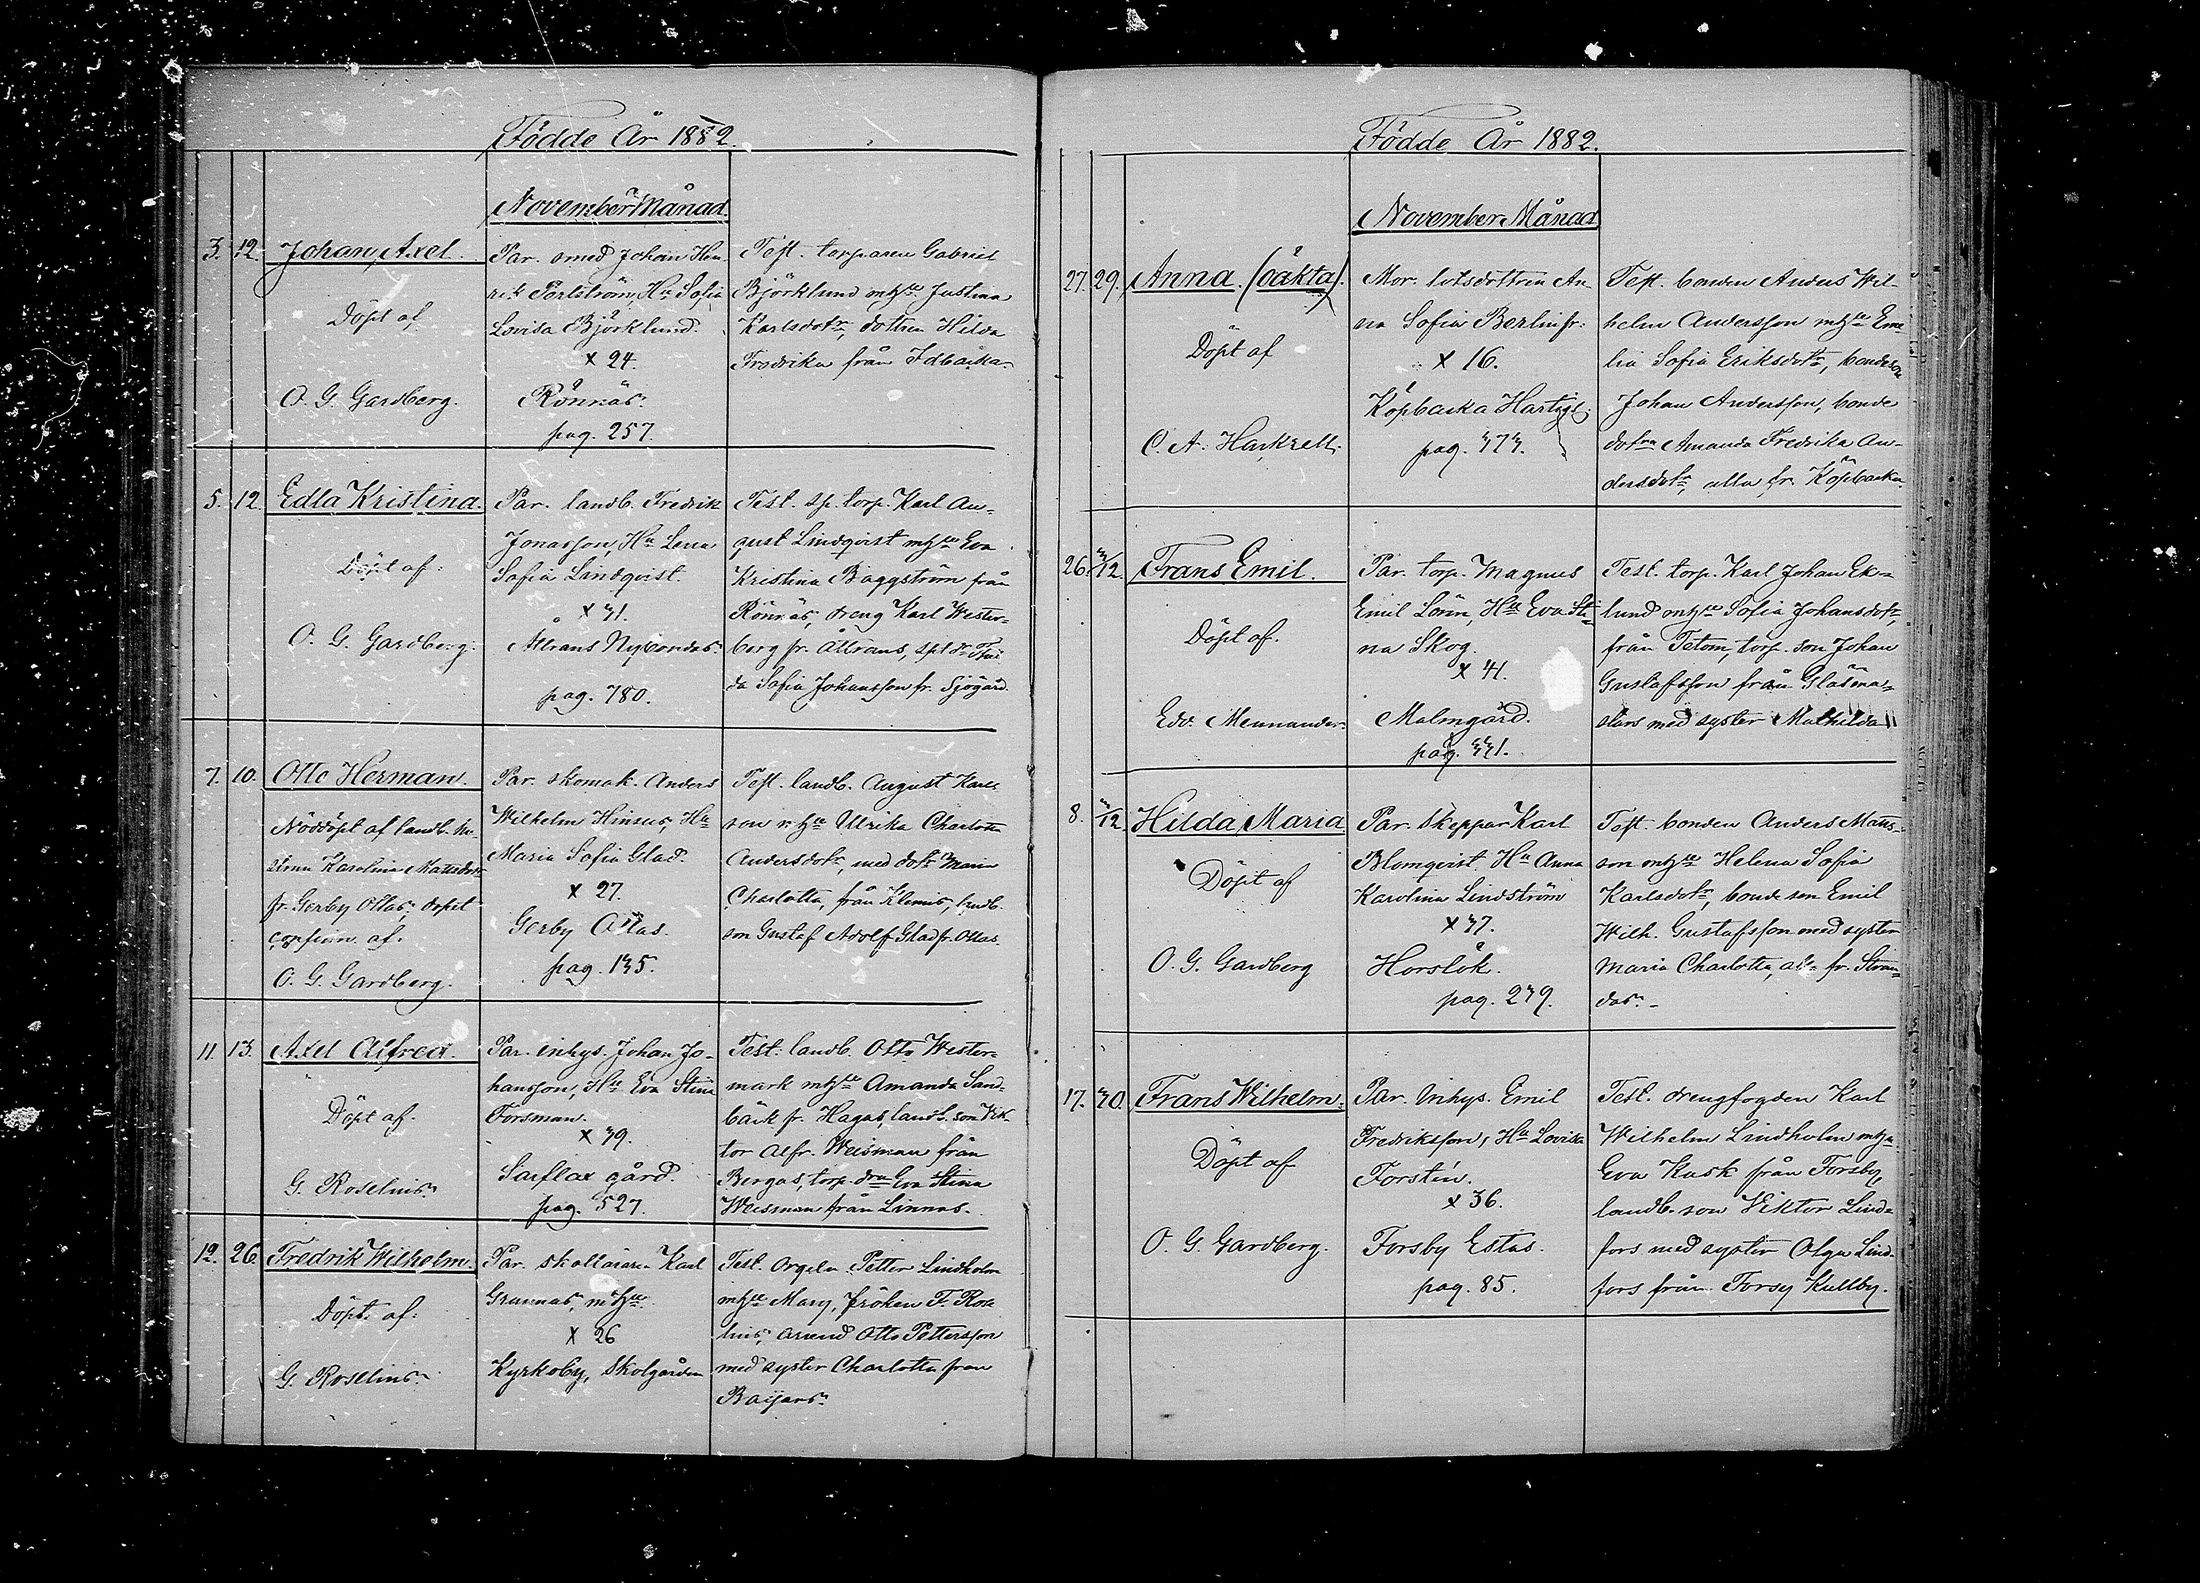 Födde År 1882.
November Månad.
3. 12. Johan Axel.
Döpt af
O. G. Gardberg.
Par. smed Johan Hen
rik Portström, Hu Sofia
Lovisa Björklund.
x 24.
Rönnäs.
pag. 257.
Test. torparen Gabriel
Björklund m hu Justina
Karlsdotr, dottren Hilda
Fredrika från Idbacka
5. 12. Edla Kristina.
Döpt af:
O. G. Gardberg.
Par. landb. Fredrik
Jonasson, Hu Lena
Sofia Lindqvist.
x 31.
Nybondas
pag. 780.
Test. sp. torp. Karl Au=
gust Lindqvist m hu Eva
Kristina Baggström från
Rönnäs, dreng Karl Wester=
berg fr.
da Sofia Johansson fr. Sjögård.
7. 10. Otto Herman.
Nöddöpt af landb.
Karolina Mattsdotr
fr. Gerby Ottas, dopet
af.
O. G. Gardberg.
Par. skomak. Anders
Wilhelm Hinsus, Hu
Maria Sofia Glad.
x 27.
Gerby Ottas.
pag. 135.
Test. landb. August Karls
son m hu Ulrika Charlotta
Andersdotr, med dotr Maria
Charlotta, från Klemis, landb.
son Gustaf Adolf Glad fr. Ottas.
11. 13. Axel Alfred.
Döpt af.
G. Roselius.
Par. inhys. Johan Jo-
hansson, Hu Eva Stina
Forsman.
x 39.
Sarflax gård.
pag. 527.
Test. landb. Otto Wester=
mark m hu Amanda Sand=
bäck fr. Hagas, landb. son Vik=
tor Alfr. Weisman från
Bergas, torp. dra Eva Stina
Weisman från Linnas.
12. 26. Fredrik Wilhelm.
Döpt af:
G. Roselius.
Par. skollärare Karl
Grannas, m hu
x 26
Kyrkoby, Skolgården
Test. Orgeln. Petter Lindholm
m hu Mary, fröken F. Rose
lius, arrend Otto Pettersson
med syster Charlotta från
Baijars.
Födde År 1882.
November Månad
27. 29. Anna. (oäkta).
Döpt af
C. A. Harkzell.
Mor. lotsdottren An
na Sofia Berlin fr.
x 16.
Köpbacka
pag. 373.
Test. bonden Anders Wil-
helm Andersson m hu Emi
lia Sofia Eriksdotr, bondeson
Johan Andersson, bonde
dotra Amanda Fredrika An-
dersdotr, alla fr. Köpbacka
26. 3/12. Frans Emil.
Döpt af.
Edv. Mennander.
Par. torp. Magnus
Emil Lörin, Hu Eva Sti=
na Skog.
x 41.
Malmgård.
pag. 331.
Test. torp. Karl Johan Ek=
lund m hu Sofia Johansdotr,
från Tetom, torp. son Johan
Gustafsson från Glasmä=
stars med syster Mathilda
8. 3/12. Hilda Maria
Döpt af
O. G. Gardberg
Par. Skeppar Karl
Blomqvist, Hu Anna
Karolina Lindström
x 37.
Horslök.
pag. 239.
Test. bonden Anders Matts=
son m hu Helena Sofia
Karlsdotr, bonde son Emil
Wilh. Gustafsson med syster
Maria Charlotta, alla fr. Stran=
das.
17. 30. Frans Wilhelm.
Döpt af
O. G. Gardberg.
Par. Inhys. Emil
Fredriksson, Hu Lovisa
Forstén.
x 36.
Forsby Estas.
pag. 85.
Test. drengfogden Karl
Wilhelm Lindholm m hu
Eva Kask från Forsby,
landb. son Viktor Lind=
fors med syster Olga Lind
fors från Forsy Kullby.